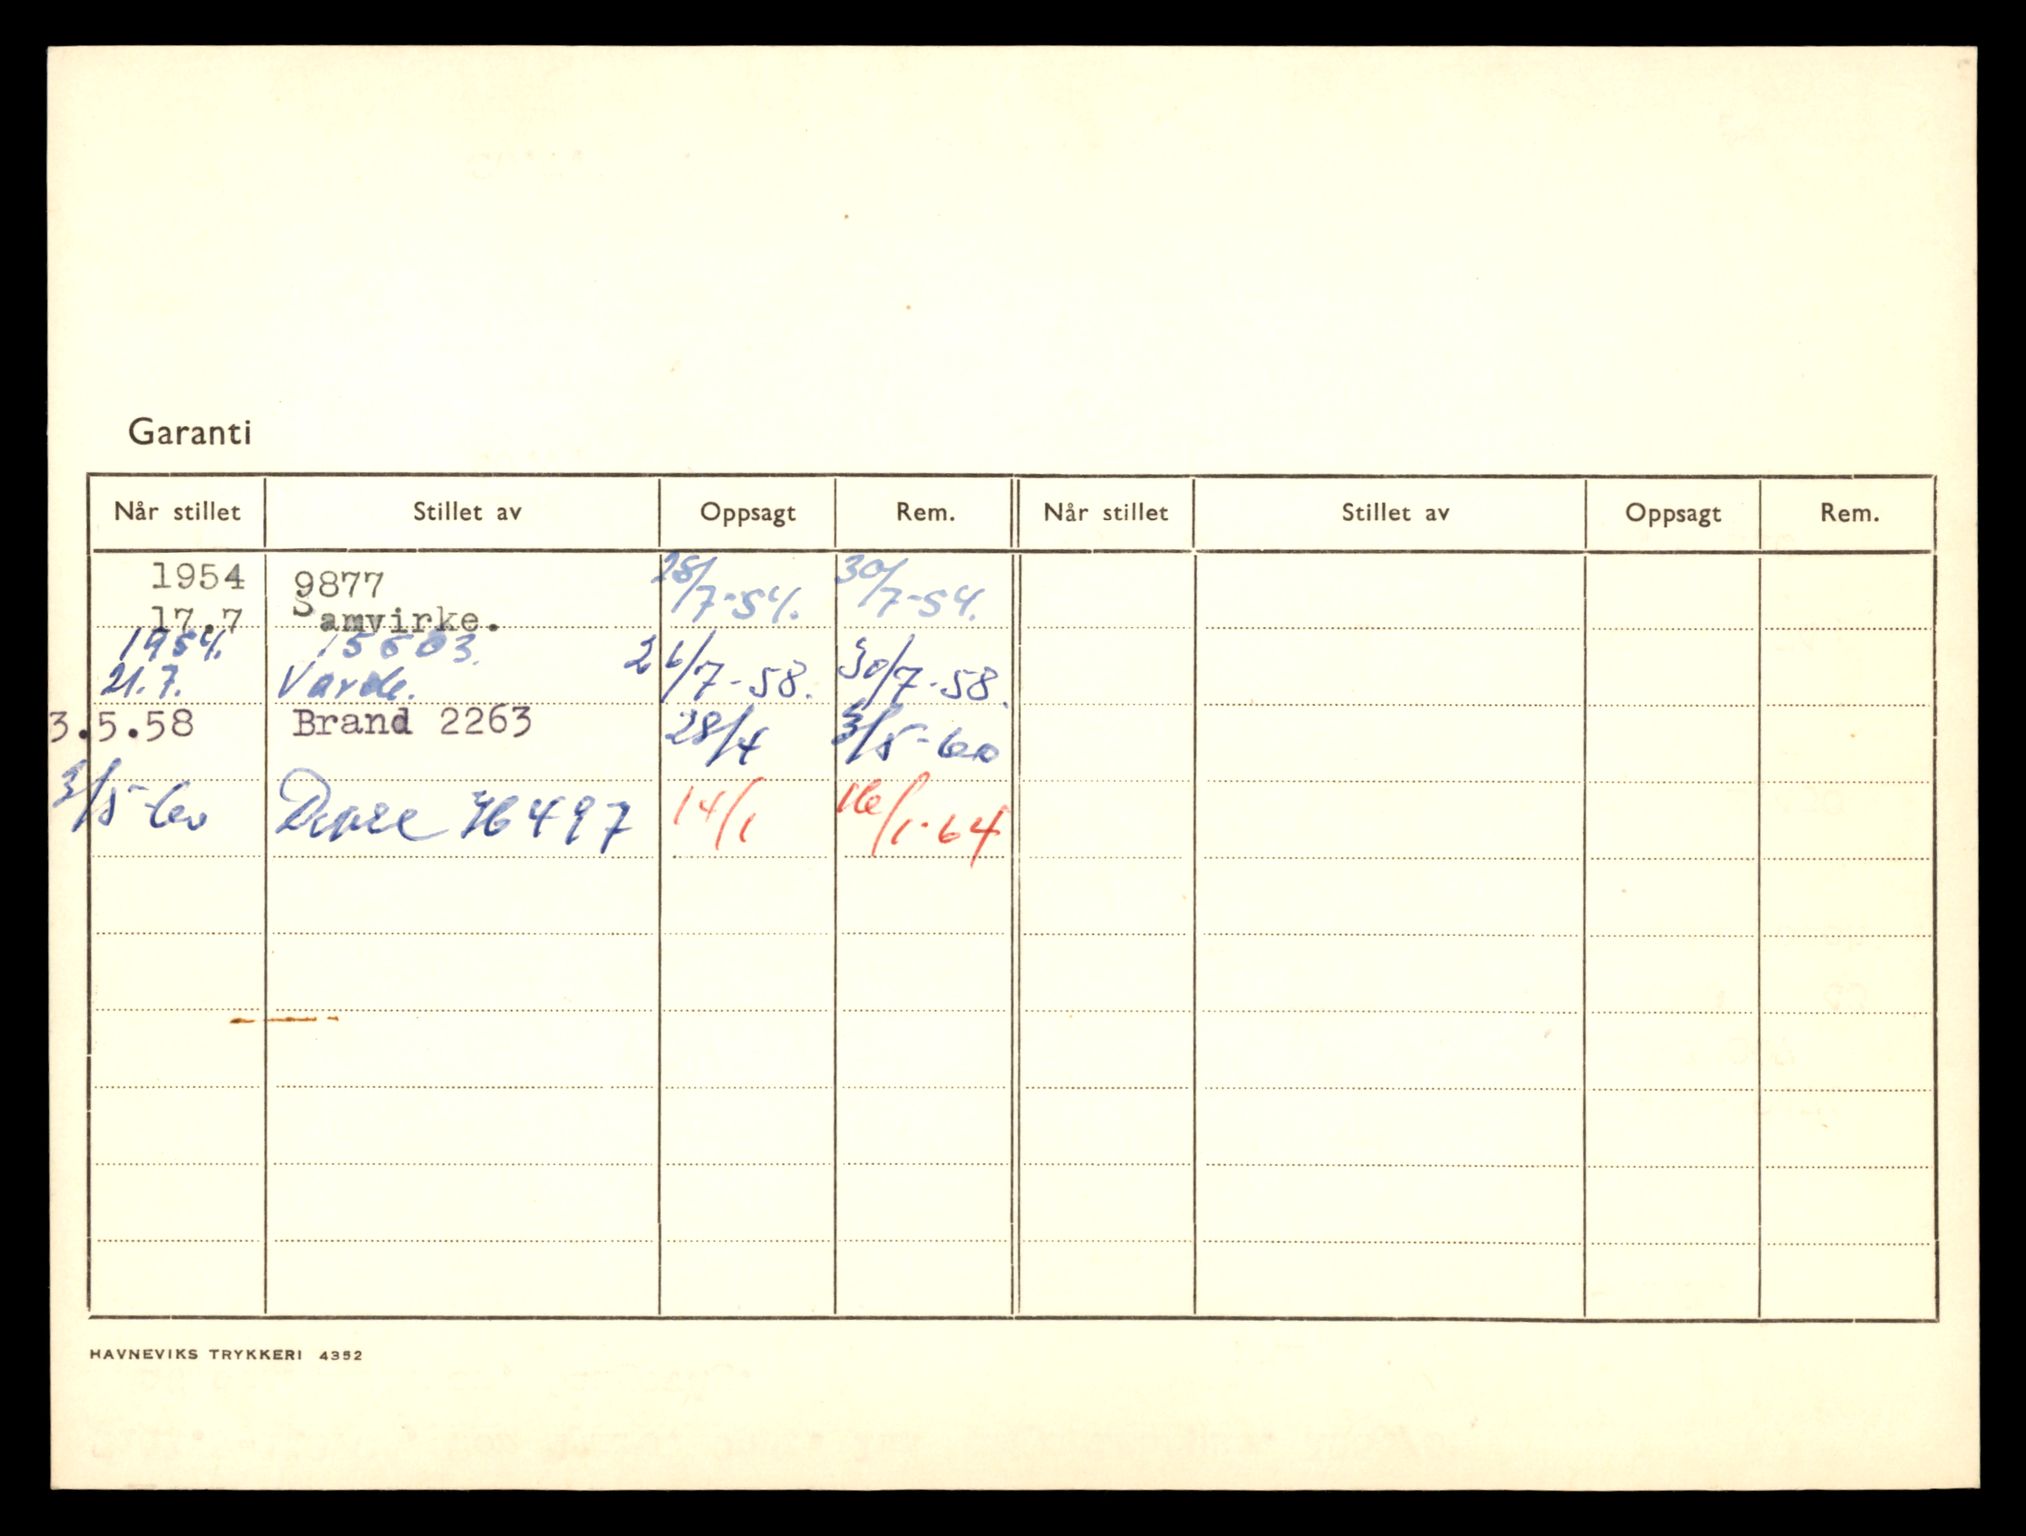 Garanti
Når stillet Stillet av Oppsagt Rem. Når stillet Stillet av Oppsagt Rem.
1954 9877 28/7-54. 30/7-54.
17.7 Samvirke.
1954. 15503.
21.7. Varde. 26/7-58. 30/7-58.
3.5.58 Brand 2263 28/4 3/5-60
3/5-60 76497 14/1 16/1-64
HAVNEVIKS TRYKKERI 4352